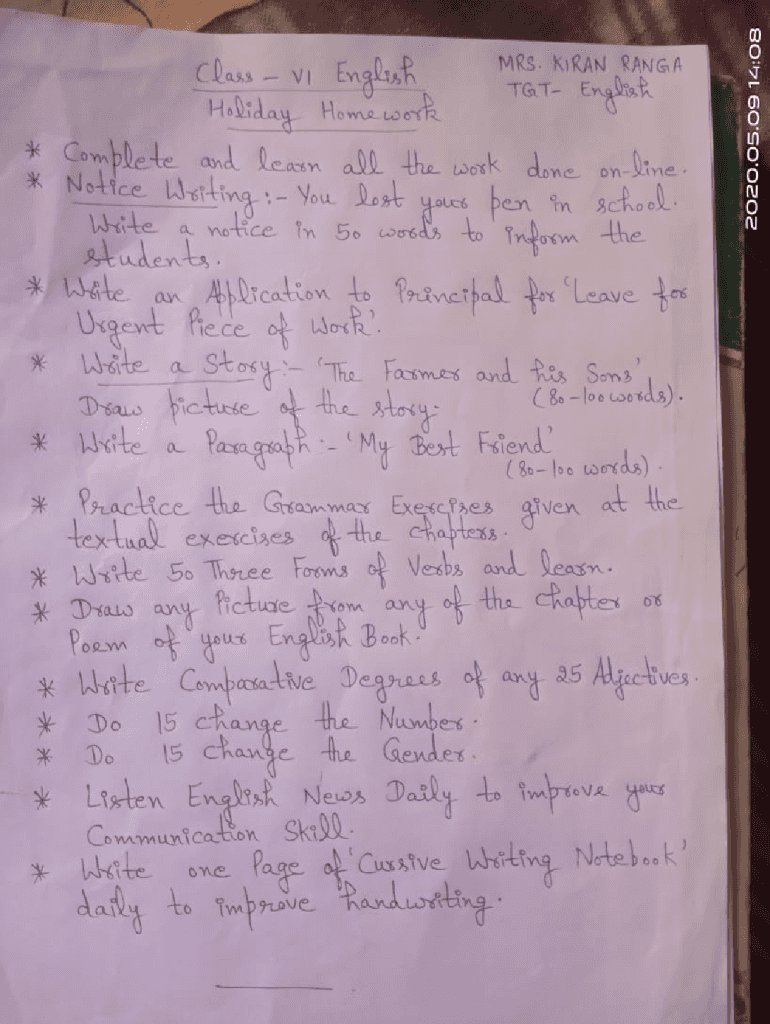 Class - VI English
MRS. KIRAN RANGA
TGT- English
Holiday Homework
* Complete and learn all the work done on-line.
* Notice Writing :- You lost your pen in school.
Write a notice in 50 words to inform the
students.
* Write an Application to Principal for 'Leave for
Urgent Piece of Work'.
* Write a Story :- 'The Farmer and his Sons'
(80-100 words).
Draw picture of the story.
* Write a Paragraph :- 'My Best Friend'
(80-100 words).
* Practice the Grammar Exercises given at the
textual exercises of the chapters.
* Write 50 Three Forms of Verbs and learn.
* Draw any Picture from any of the chapter or
Poem of your English Book.
* Write Comparative Degrees of any 25 Adjectives.
* Do 15 change the Number.
* Do 15 change the Gender.
* Listen English News Daily to improve your
Communication Skill.
* Write one Page of 'Cursive Writing Notebook'
daily to improve handwriting.
2020.05.09 14:08